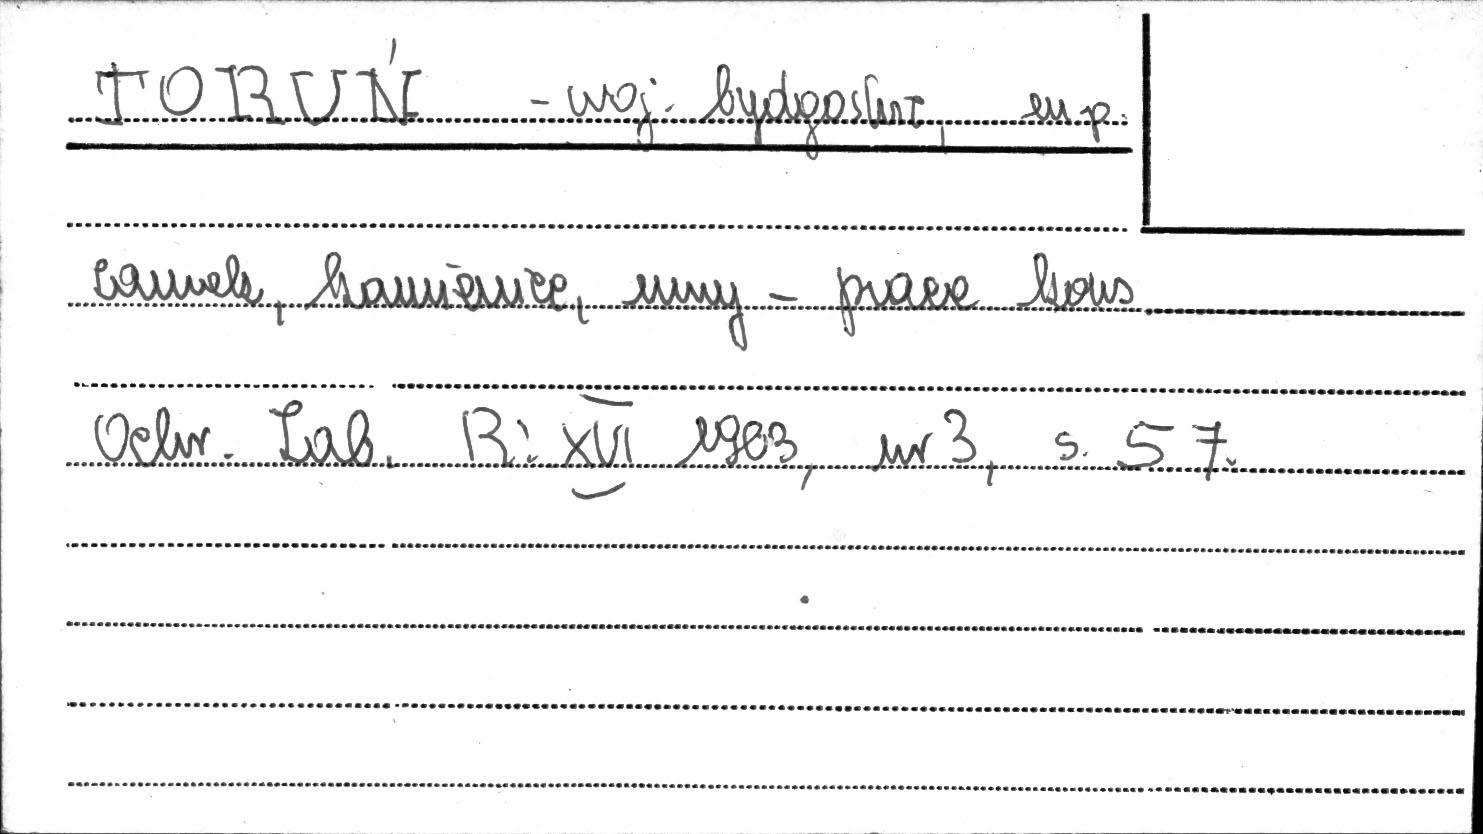 TORUŃ - woj. bydgoskie, m.p.
zamek, kamienice, mury - prace kons
Ochr. Zab. R: XVI 1963, nr 3, s. 57.